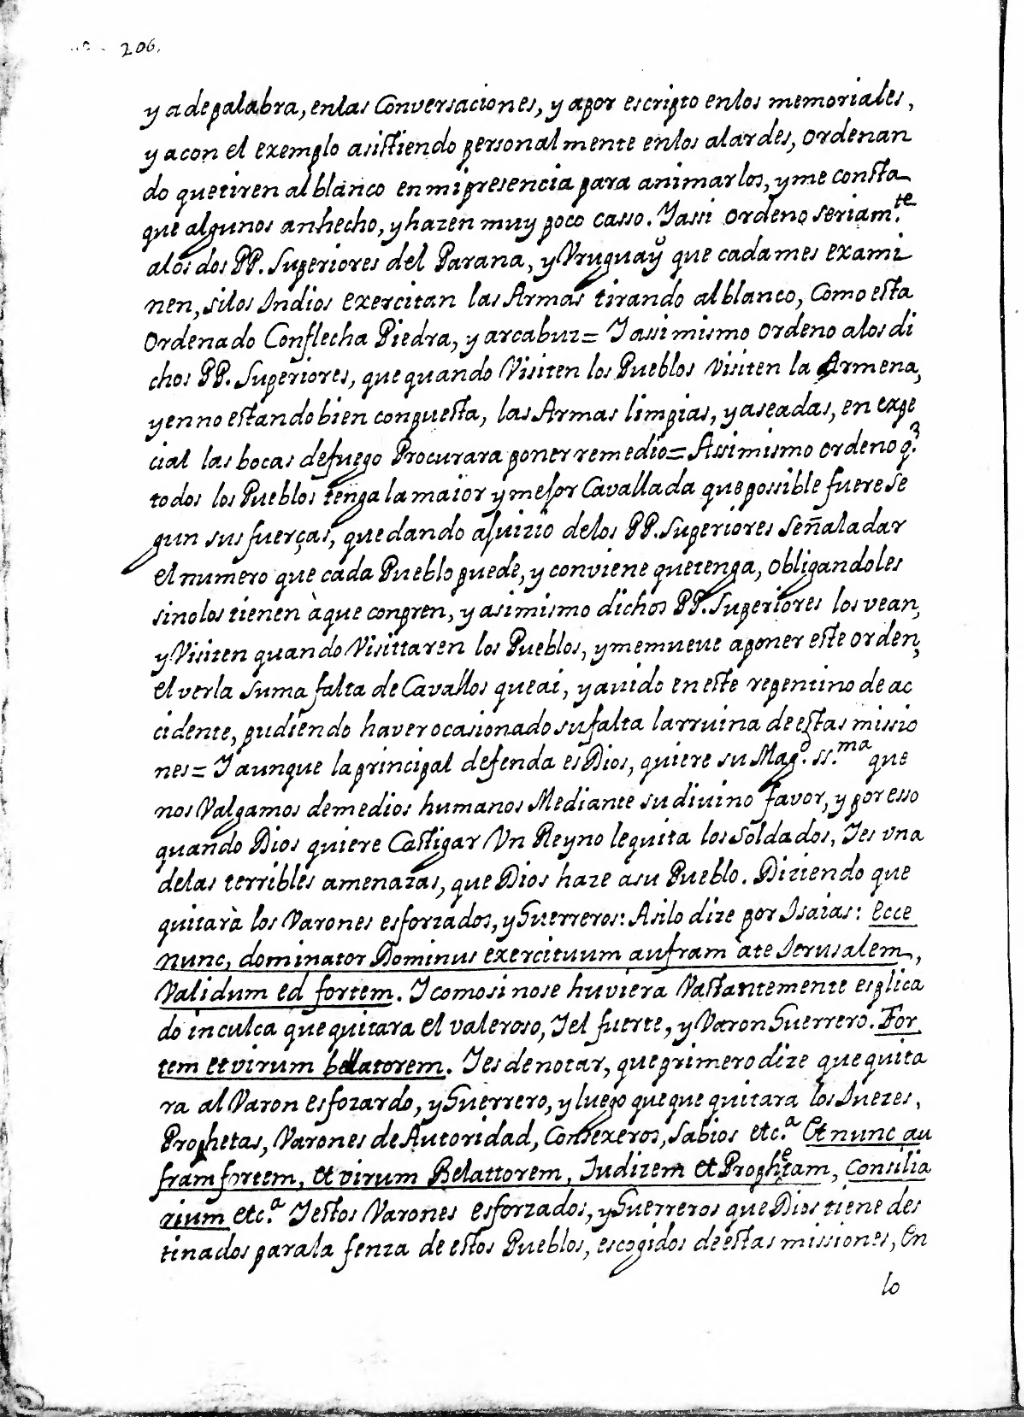 206.
y a de palabra, en las Conversaciones, y a por escripto en los memoriales,
y a con el exemplo asistiendo personalmente en los alardes, ordenan
do que tiren al blanco en mi presencia para animarlos, y me consta
que algunos an hecho, y hazen muy poco casso. Y assi ordeno seriam.te
a los dos PP. Superiores del Parana, y Vruguaÿ que cada mes exami
nen, si los Indios exercitan las Armas tirando al blanco, Como esta
Ordenado Con flecha Piedra, y arcabuz= Y assi mismo ordeno a los di
chos PP. Superiores, que quando Visiten los Pueblos Visiten la Armeria,
y en no estando bien conpuesta, las Armas limpias, y aseadas, en espe
cial las bocas de fuego Procurara poner remedio= Assimismo ordeno q.e
todos los Pueblos tenga la maior y mejor Cavallada que possible fuere se
gun sus fuerças, quedando a juizio de los PP. Superiores Señalar
el numero que cada Pueblo puede, y conviene que tenga, obligandoles
si no los tienen à que conpren, y asimismo dichos PP. Superiores los vean,
y Visiten quando Visittaren los Pueblos, y me mueve a poner este orden,
el ver la suma falta de Cavallos que ai, y a auido en este repentino de ac
cidente, pudiendo haver ocasionado su falta la rruina de estas missio
nes= Y aunque la principal defenda es Dios, quiere su Mag.d ss.ma que
nos Valgamos de medios humanos Mediante su diuino favor, y por esso
quando Dios quiere Castigar Vn Reyno le quita los Soldados, Y es vna
de las terribles amenazas, que Dios haze a su Pueblo. Diziendo que
quitarà los Varones esforzados, y Guerreros: Asi lo dize por Isaias: ecce
nunc, dominator Dominus exercituum aufram àte Ierusalem,
Validum ed fortem. Y como si no se huviera Vastantemente esplica
do inculca que quitara el valeroso, Y el fuerte, y Varon Guerrero. For
tem et virum bellatorem. Y es de notar, que primero dize que quita
ra al Varon esfozardo, y Guerrero, y luego que que quitara los Iuezes,
Prophetas, Varones de Autoridad, Consexeros, Sabios etc.a Et nunc au
fram fortem, et virum Belattorem, Iudizem et Prophetam, Consilia
rium etc.a Y estos Varones esforzados, y Guerreros que Dios tiene des
tinados para la fenza de estos Pueblos, escogidos de estas missiones, en
lo